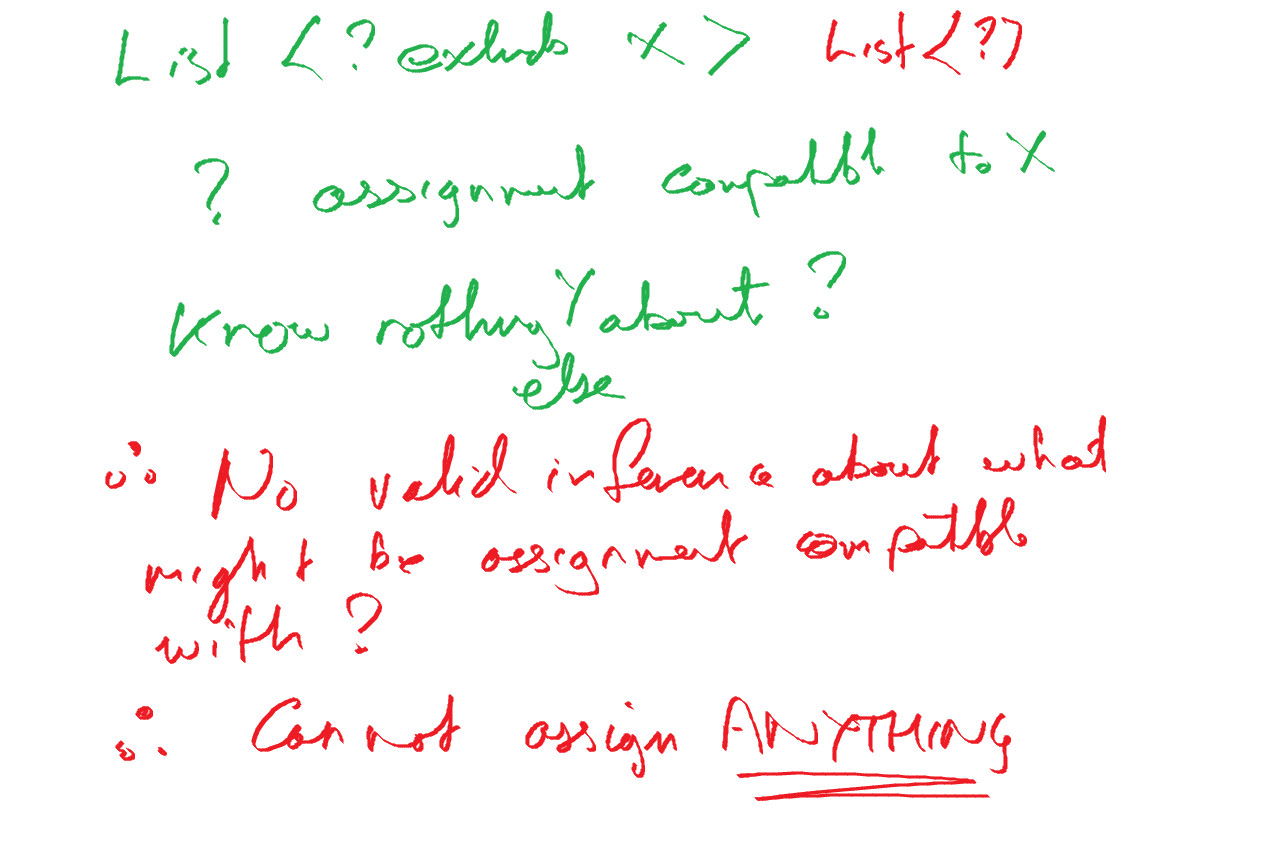 List <? extends X> List<?>
? assignment compatible to X
Know nothing else about ?
∴ No valid inference about what
might be assignment compatible
with ?
∴ Cannot assign ANYTHING